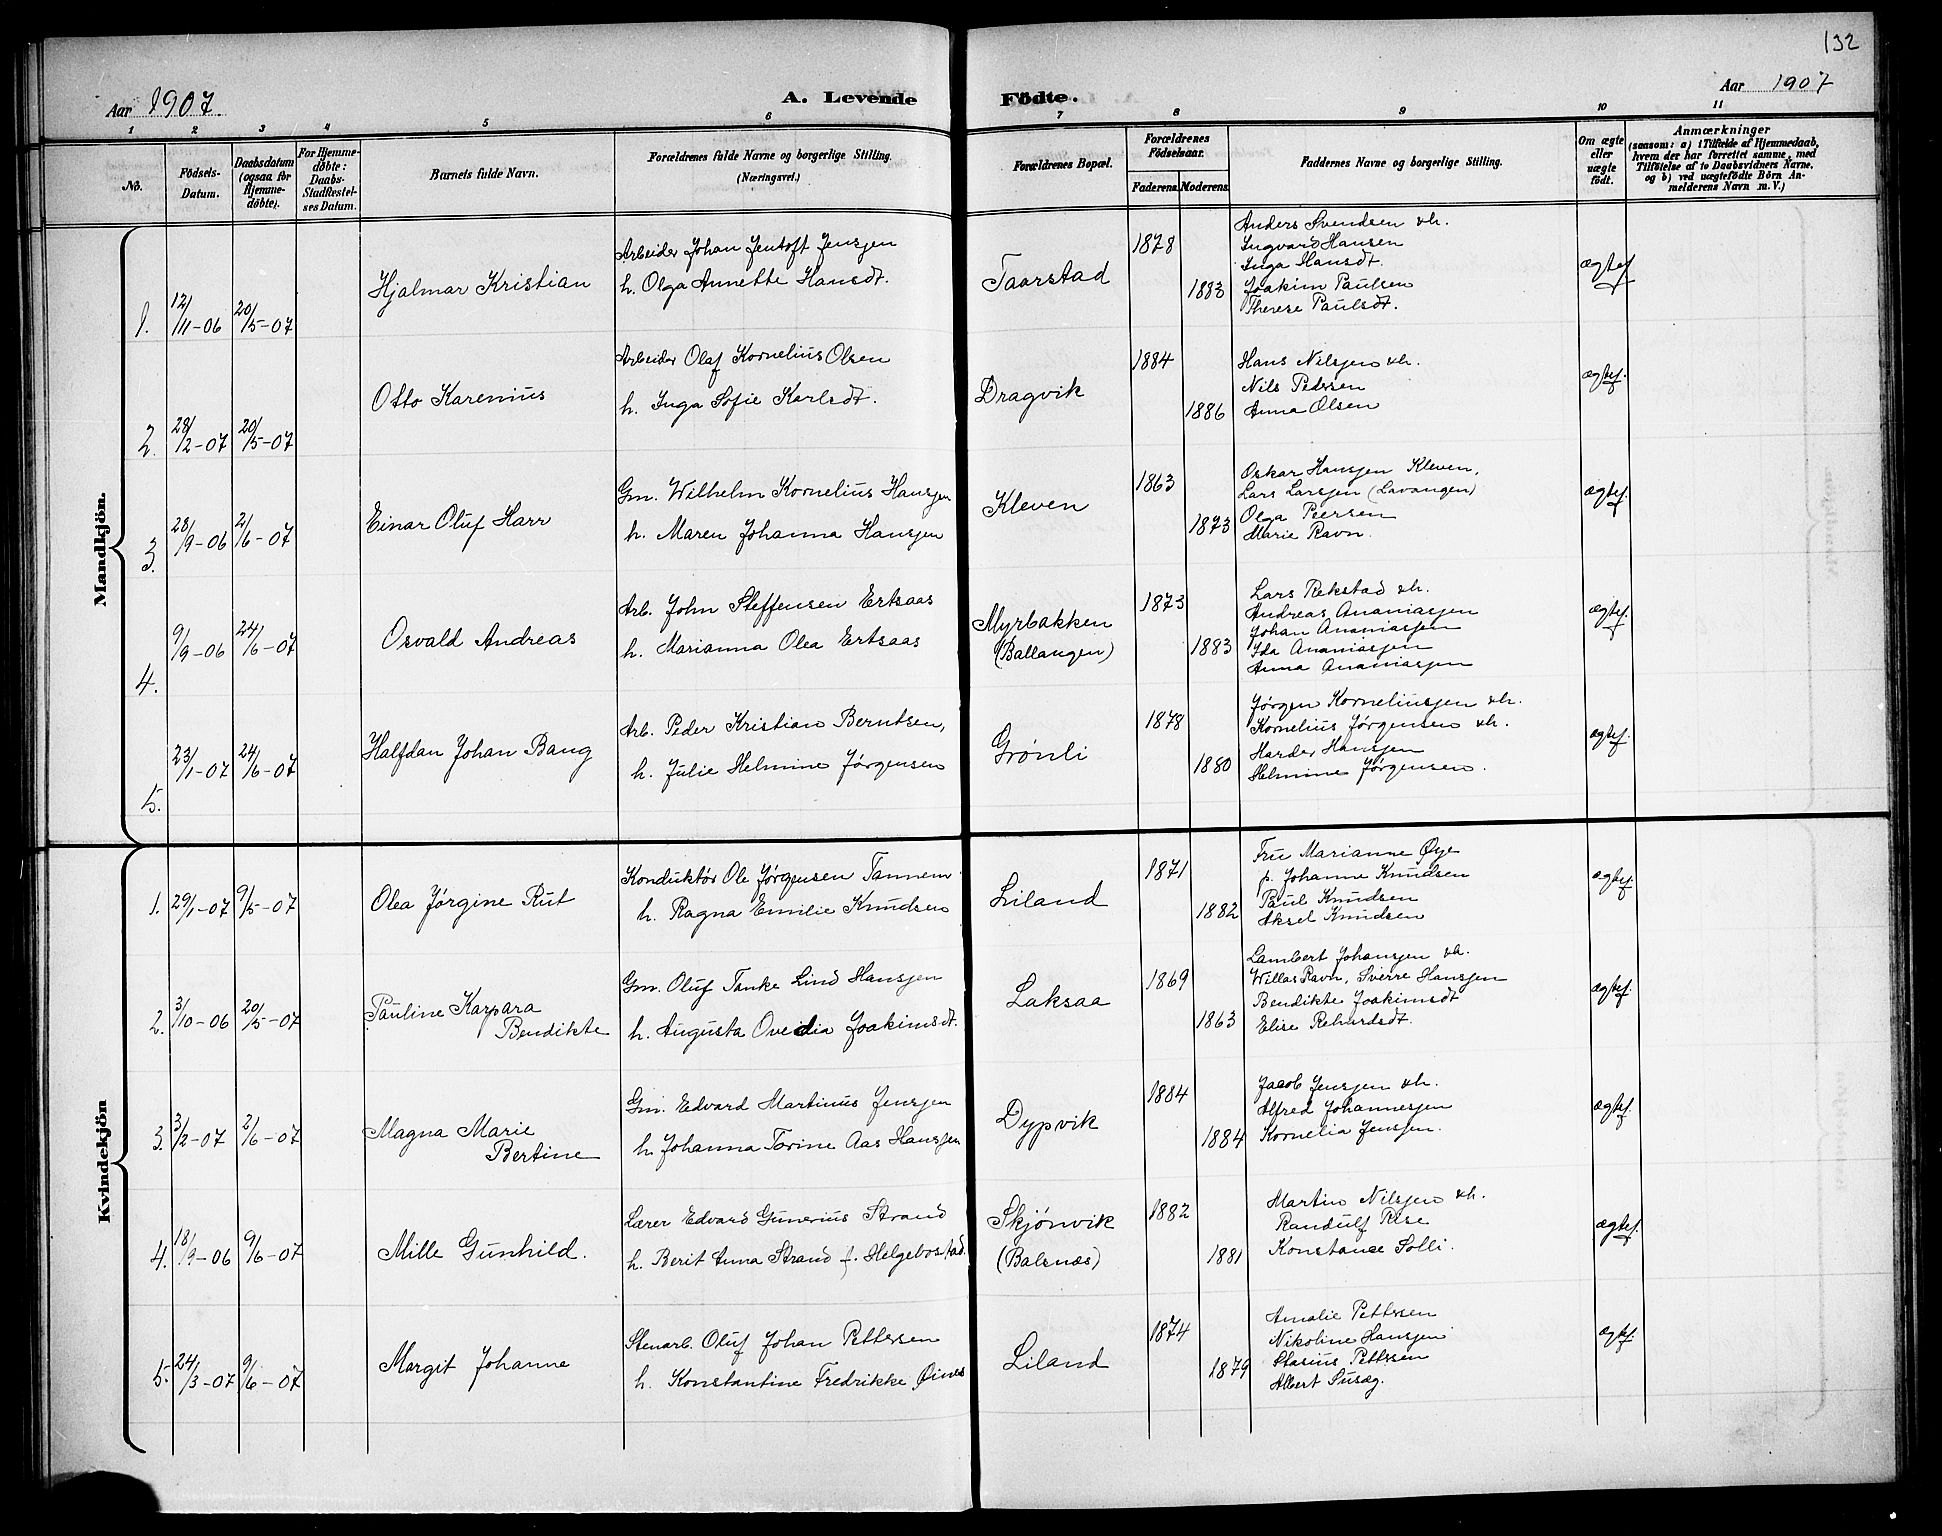 132
Aar 1907. A. Levende Födte. Aar 1907
1 2 3 4 5 6 7 8 9 10 11
No.
Födsels-
Datum.
Daabsdatum
(ogsaa for
Hjemme-
døbte).
For Hjemme-
døbte:
Daabs-
Stadfæstel-
ses Datum.
Barnets fulde Navn.
Forældrenes fulde Navne og borgerlige Stilling.
(Næringsvei.)
Forældrenes Bopæl.
Forældrenes
Fødselsaar.
Faderens. Moderens.
Faddernes Navne og borgerlige Stilling.
Om ægte
eller
uægte
født.
Anmærkninger
(saasom: a) i Tilfælde af Hjemmedaab,
hvem der har forrettet samme, med
Tilføielse af to Daabsvidners Navne,
og b) ved uægtefødte Börn An-
melderens Navn m. V.)
Mandkjön.
1. 12/11-06 20/5-07 Hjalmar Kristian
Arbeider Johan Jentoft Jensjen
h. Olga Annette Hansdt.
Taarstad 1878 1883
Anders Svendsen & h.
Ingvard Hansen
Inga Hansdt.
Joakim Paulsen
Therese Paulsdt.
ægtef.
2. 28/2-07 20/5-07 Otto Karenius
Arbeider Olaf Kornelius Olsen
h. Inga Sofie Karlsdt.
Dragvik 1884 1886
Hans Nilsjen & h.
Nils Pedersen
Anna Olsen
ægtef.
3. 28/9-06 2/6-07 Einar Oluf Harr
Gm. Wilhelm Kornelius Hansjen
h. Maren Johanna Hansjen
Kleven 1863 1873
Oskar Hansjen Kleven,
Lars Larsjen (Lavangen)
Olga Peersen
Marie Ravn.
ægtef.
4. 9/9-06 24/6-07 Osvald Andreas
Arb. John Steffensen Ertsaas
h. Marianna Olea Ertsaas
Myrbakken
(Ballangen)
1873 1883
Lars Rekstad & h.
Andreas Ananiasjen
Johan Ananiasjen
Ida Ananiasjen
Anna Ananiasjen
ægtef.
5. 23/1-07 24/6-07 Halfdan Johan Bang
Arb. Peder Kristian Berntsen,
h. Julie Helmine Jørgensen
Grønli 1878 1880
Jørgen Korneliusjen & h.
Kornelius Jørgensen & h.
Harder Hansjen
Helmine Jørgensen.
ægtef.
Kvindekjön
1. 29/1-07 9/5-07 Olea Jørgine Rut
Konduktör Ole Jørgensen Tannem
h. Ragna Emilie Knudsen
Liland 1871 1882
Fru Marianne Øye
p. Johanne Knudsen
Paul Knudsen
Aksel Knudsen
ægtef.
2. 3/10-06 20/5-07 Pauline Kaspara
Bendikte
Gm. Oluf Tanke Lind Hansjen
h. Augusta Ovedia Joakimsdt.
Laksaa 1869 1863
Lambert Johansjen & h.
Willas Ravn, Sverre Hansjen
Bendikte Joakimsdt
Elise Rehardsdt.
ægtef.
3. 3/2-07 2/6-07 Magna Marie
Bertine
Gm. Edvard Martinus Jensjen
h. Johanna Torine Aas Hansjen
Dypvik 1884 1884
Jacob Jensjen & h.
Alfred Johannesjen
Kornelia Jensjen.
ægtef.
4. 18/9-06 9/6-07 Mille Gunhild.
Lærer Edvard Gunerius Strand
h. Berit Anna Strand f. Helgebostad.
Skjønvik
(Balsnæs)
1882 1881
Martin Nilsjen & h.
Randulf Rise
Konstance Solli.
ægtef.
5. 24/3-07 9/6-07 Margit Johanne
Stenarb. Oluf Johan Pettersen
h. Konstantine Fredrikke Øines
Liland 1874 1879
Amalie Pettersen
Nikoline Hansjen
Stasius Pettersen
Albert Susæg.
ægtef.